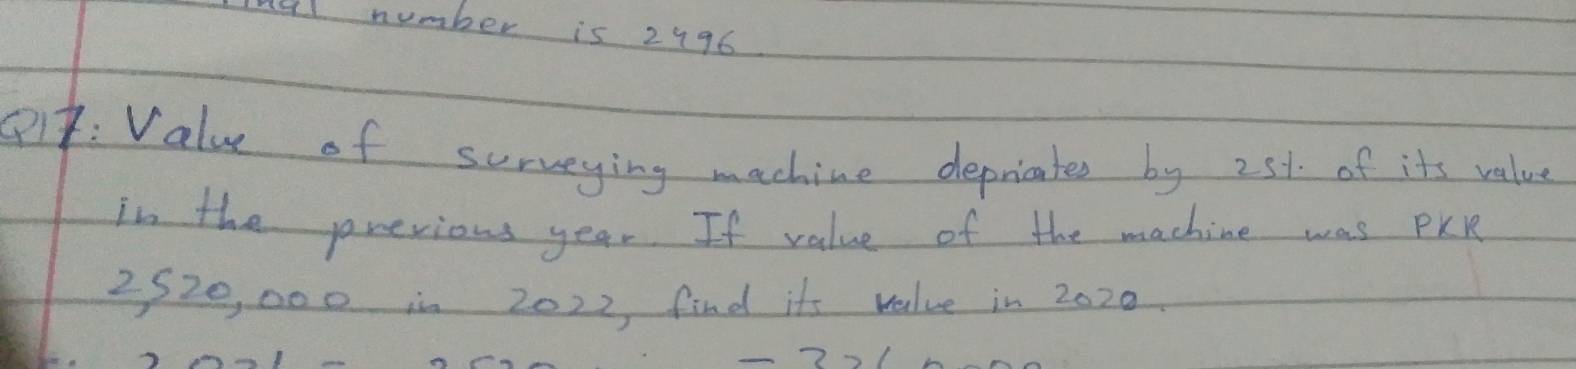 number is 2496
Q17: Value of surveying machine depriates by 25% of its value
in the previous year. If value of the machine was PKR
2,520,000 in 2022, find its value in 2020.